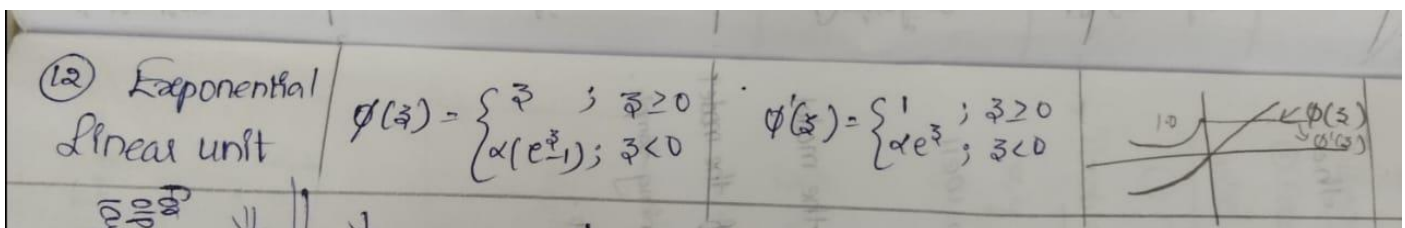 12 Exponential
Linear unit
φ(z) = { z ; z ≥ 0
α(e^z-1) ; z < 0
φ'(z) = { 1 ; z ≥ 0
αe^z ; z < 0
1.0
φ(z)
φ'(z)